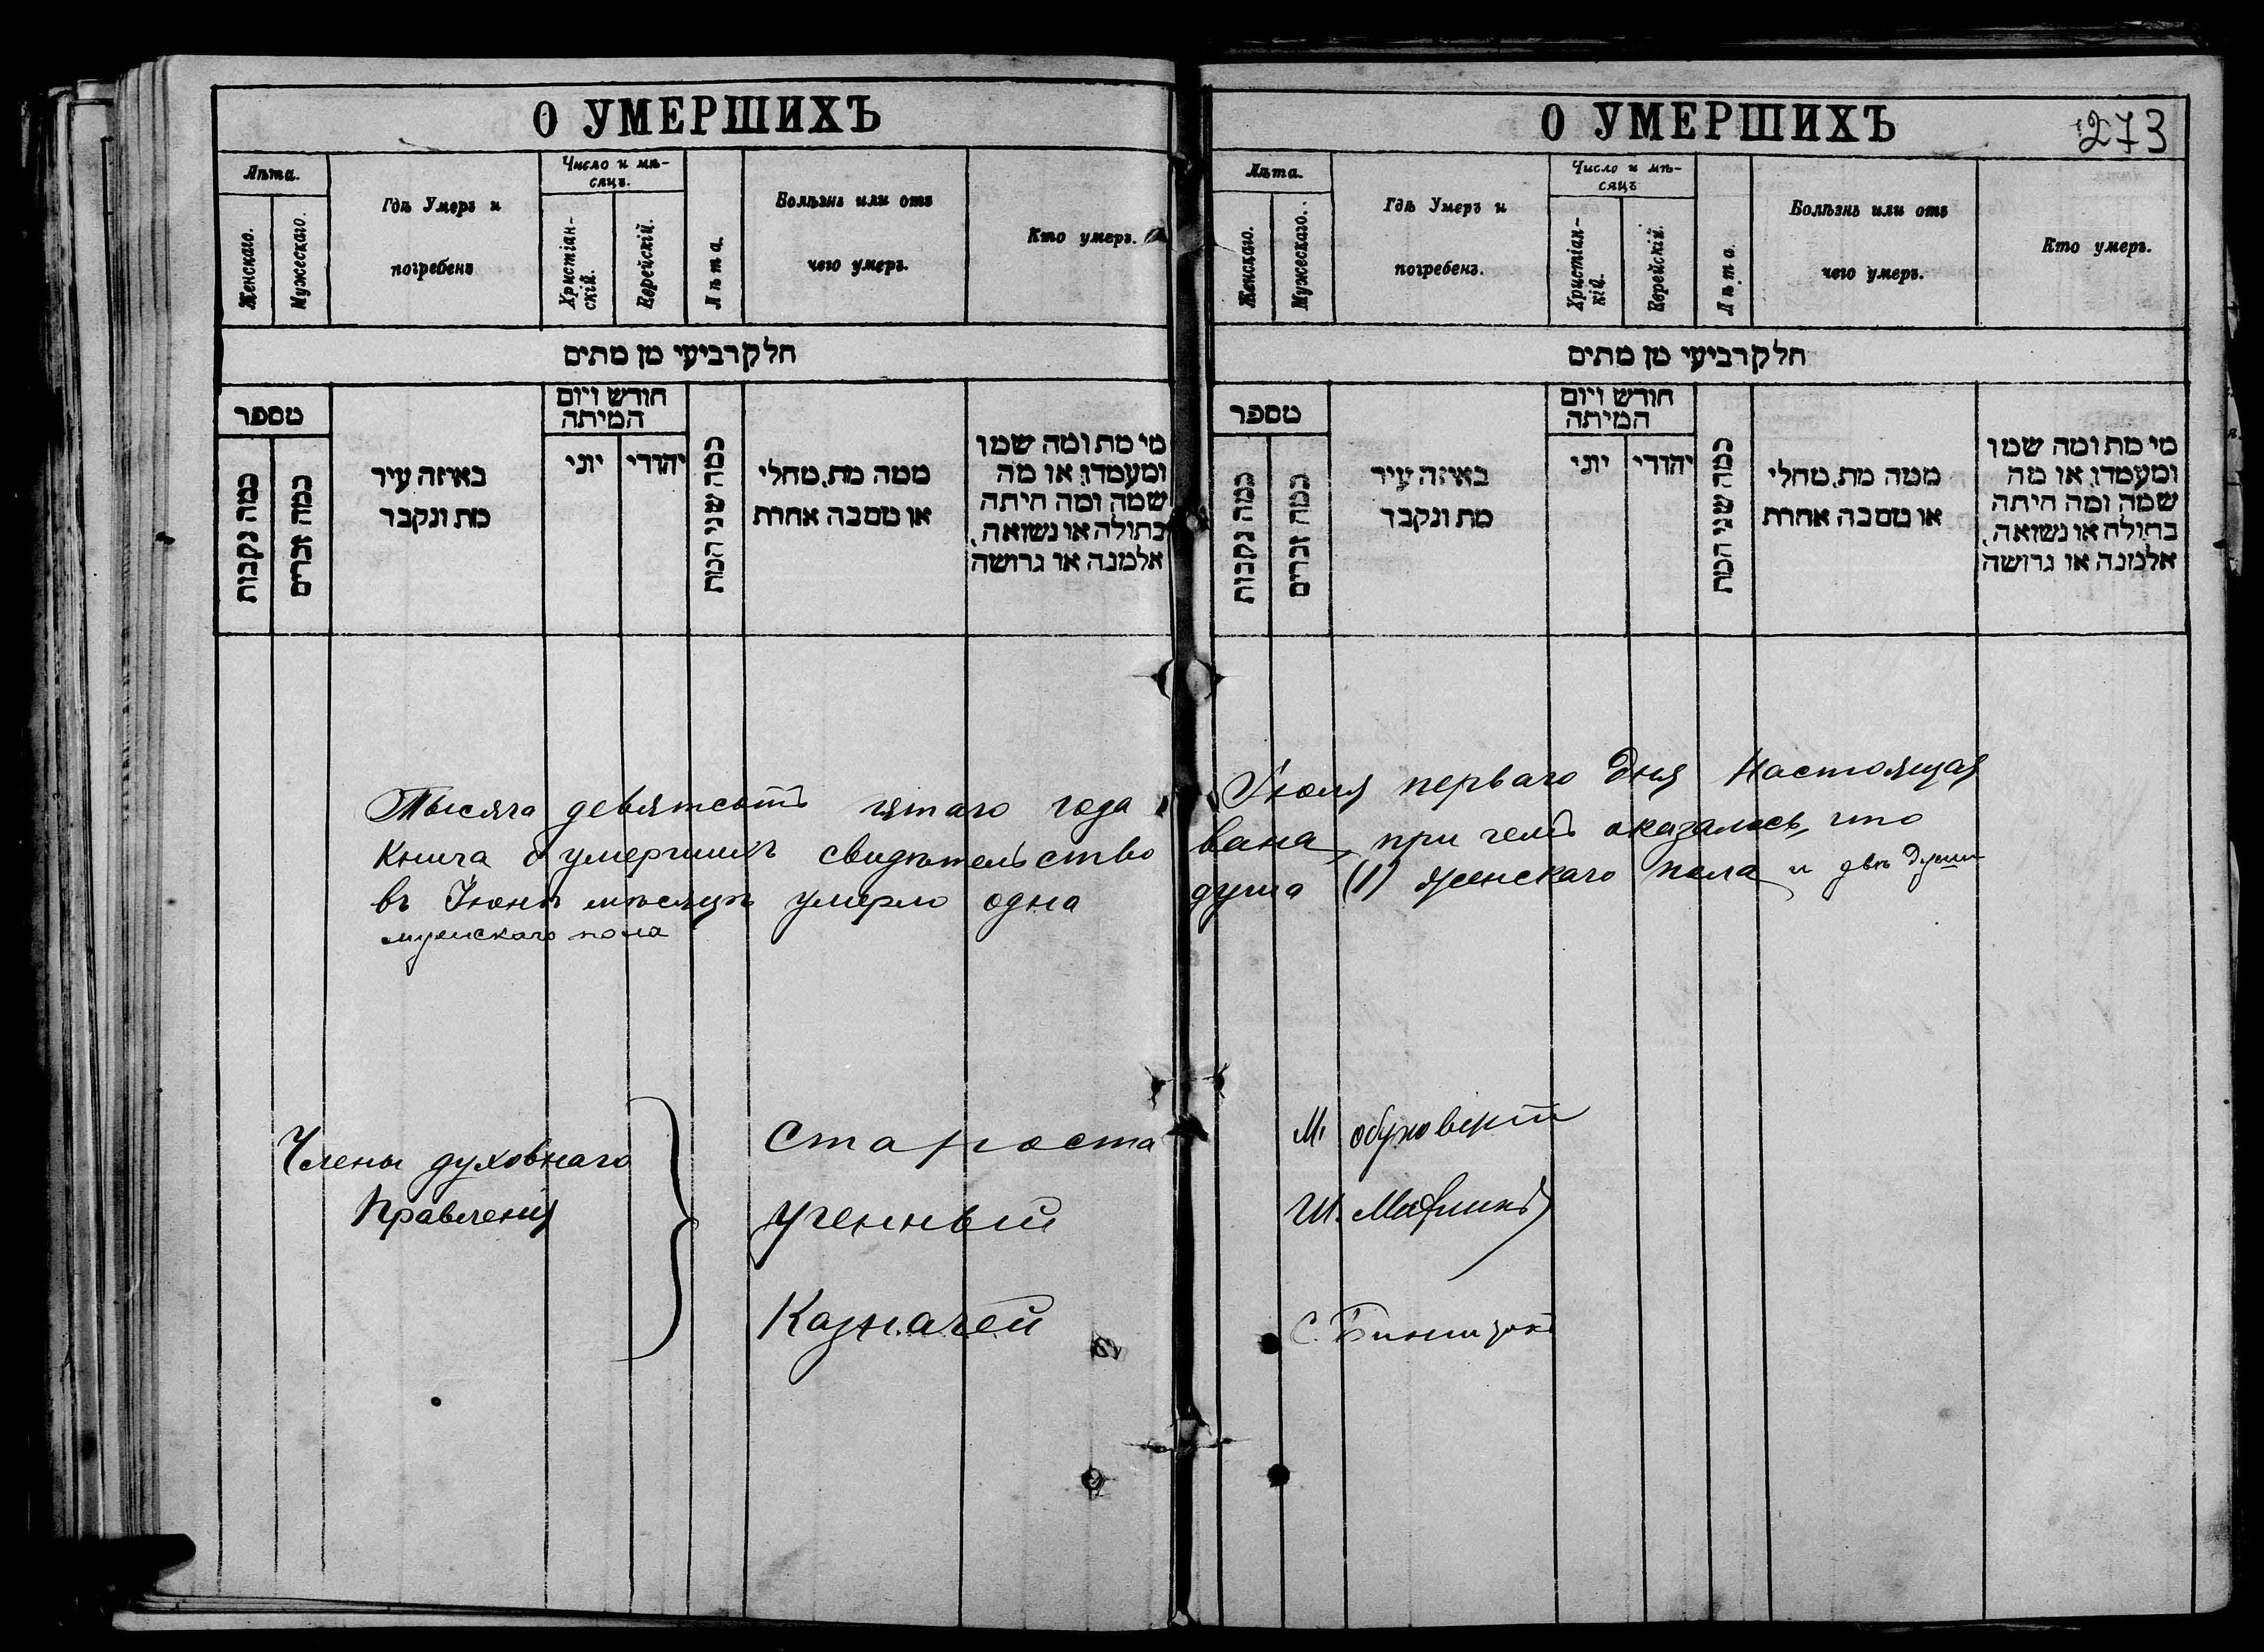 О УМЕРШИХЪ
Лѣта.
Женскаго.
Мужескаго.
Гдѣ Умеръ и
погребенъ
Число и мѣ-
сяцъ.
Христіан-
скій.
Еврейскій.
Лѣта.
Болѣзнь или отъ
чего умеръ.
Кто умеръ.
חלק רביעי מן מתים
מספר
כמה נקבות
כמה זכרים
באיזה עיר
מת ונקבר
חודש ויום
המיתה
יוני
יהודי
כמה שני המת
ממה מת, מחלי
או מסבה אחרת
מי מת ומה שמו
ומעמדו, או מה
שמה ומה היתה
בתולה או נשואה,
אלמנה או גרושה
Тысяча девятьсотъ пятаго года
Книга о умершихъ свидѣтельство
въ Іюнѣ мѣсяцѣ умерло одна
мужскаго пола
Члены духовнаго
Правленія
Староста
Ученный
Казначей
О УМЕРШИХЪ
273
Лѣта.
Женскаго.
Мужескаго.
Гдѣ Умеръ и
погребенъ.
Число и мѣ-
сяцъ
Христіан-
кій.
Еврейскій.
Лѣта.
Болѣзнь или отъ
чего умеръ.
Кто умеръ.
חלק רביעי מן מתים
מספר
כמה נקבות
כמה זכרים
באיזה עיר
מת ונקבר
חודש ויום
המיתה
יוני
יהודי
כמה שני המת
ממה מת, מחלי
או מסבה אחרת
מי מת ומה שמו
ומעמדו, או מה
שמה ומה היתה
בתולה או נשואה,
אלמנה או גרושה
Іюля перваго дня Настоящая
вана, при чемъ оказалось, что
душа (1) женскаго пола и двѣ души
М.
Ш.
С.